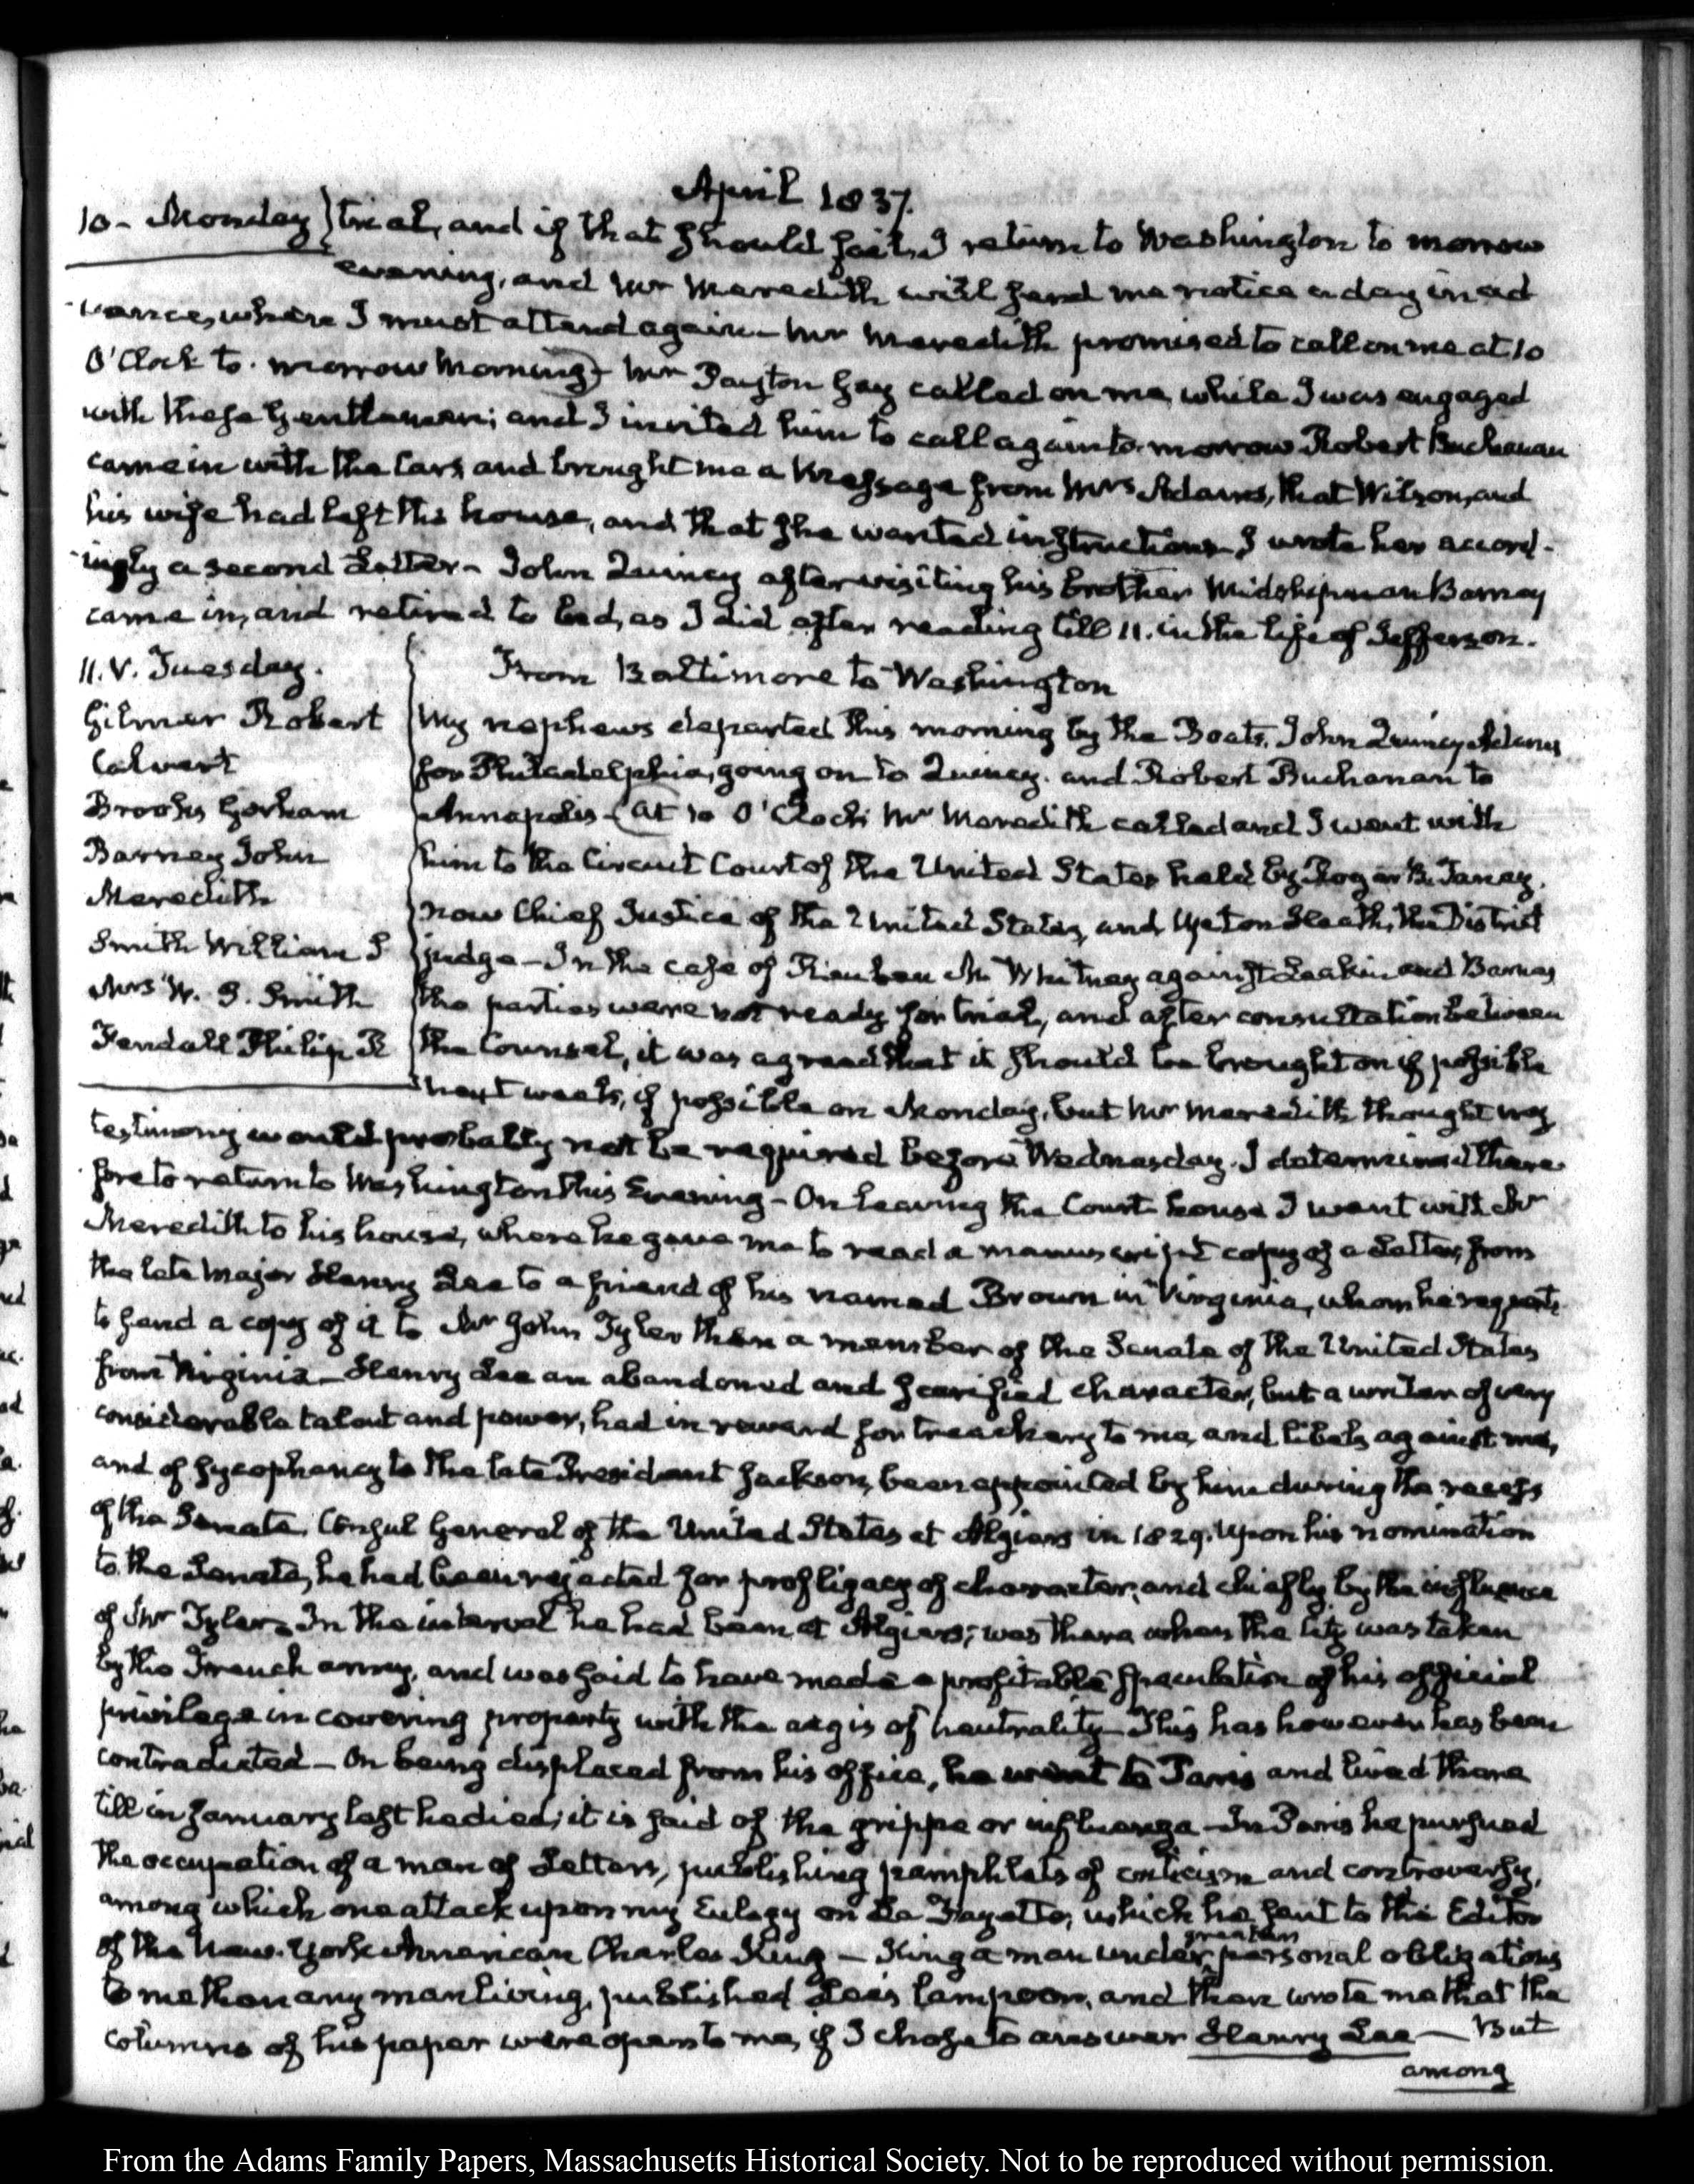 April 1837.
10 - Monday} trial, and if that should fail, I return to Washington to morrow
evening, and Mr Meredith will send me notice a day in ad
-vance, where I must attend again - Mr Meredith promised to call on me at 10
O'Clock to-morrow Morning) Mr Payton Gay called on me, while I was engaged
with these Gentlemen; and I invited him to call again to-morrow Robert Buchanan
came in with the Cars and brought me a Message from Mrs Adams, that Wilson, and
his wife had left the house, and that she wanted instructions I wrote her accord-
-ingly a second Letter - John Quincy after visiting his brother Midshipman Barney
came in, and retired to bed, as I did after reading till 11. in the life of Jefferson.
11. V. Tuesday.
Gilmer Robert
Calvert
Brooks Gorham
Barney John
Meredith
Smith William S
Mrs W. S. Smith
Fendall Philip R
From Baltimore to Washington
My nephews departed this morning by the Boats. John Quincy Adams
for Philadelphia, going on to Quincy. and Robert Buchanan to
Annapolis - (at 10 O'Clock Mr Meredith called and I went with
him to the Circuit Court of the United States held by Roger B. Taney,
now Chief Justice of the United States, and Upton Heath, the District
judge - In the case of Rieuben M. Whitney against Leakin and Barnes
the parties were not ready for trial, and after consultation between
the Counsel, it was agreed that it should be brought on if possible
next week, if possible on Monday, but Mr Meredith thought my
testimony would probably not be required before Wednesday. I determined there-
-fore to return to Washington this Evening - On leaving the Court house I went with Mr
Meredith to his house, where he gave me to read a manuscript copy of a Letter, from
the late Major Henry Lee to a friend of his named Brown in Virginia, whom he requests
to send a copy of it to Mr John Tyler then a member of the Senate of the United States
from Virginia - Henry Lee an abandoned and scarified character, but a writer of very
considerable talent and power, had in reward for treachery to me, and libels against me,
and of sycophancy to the late President Jackson, been appointed by him during the recess
of the Senate, Consul General of the United States at Algiers in 1829. Upon his nomination
to the Senate, he had been rejected for profligacy of character, and chiefly by the influence
of Mr Tyler - In the interval he had been at Algiers; was there when the City was taken
by the French army, and was said to have made a profitable speculation of his official
privilege in covering property with the aegis of neutrality - This has however has been
contradicted - On being displaced from his office, he went to Paris and lived there
till in January last he died; it is said of the grippe or influenza - In Paris he pursued
the occupation of a man of Letters, publishing pamphlets of criticism and controversy,
among which one attack upon my Eulogy on La Fayette, which he sent to the Editor
of the New-York American Charles King - King a man under greater personal obligations
to me than any man living, published Lee's lampoon, and then wrote me that the
columns of his paper were open to me, if I chose to answer Henry Lee - But
among
From the Adams Family Papers, Massachusetts Historical Society. Not to be reproduced without permission.